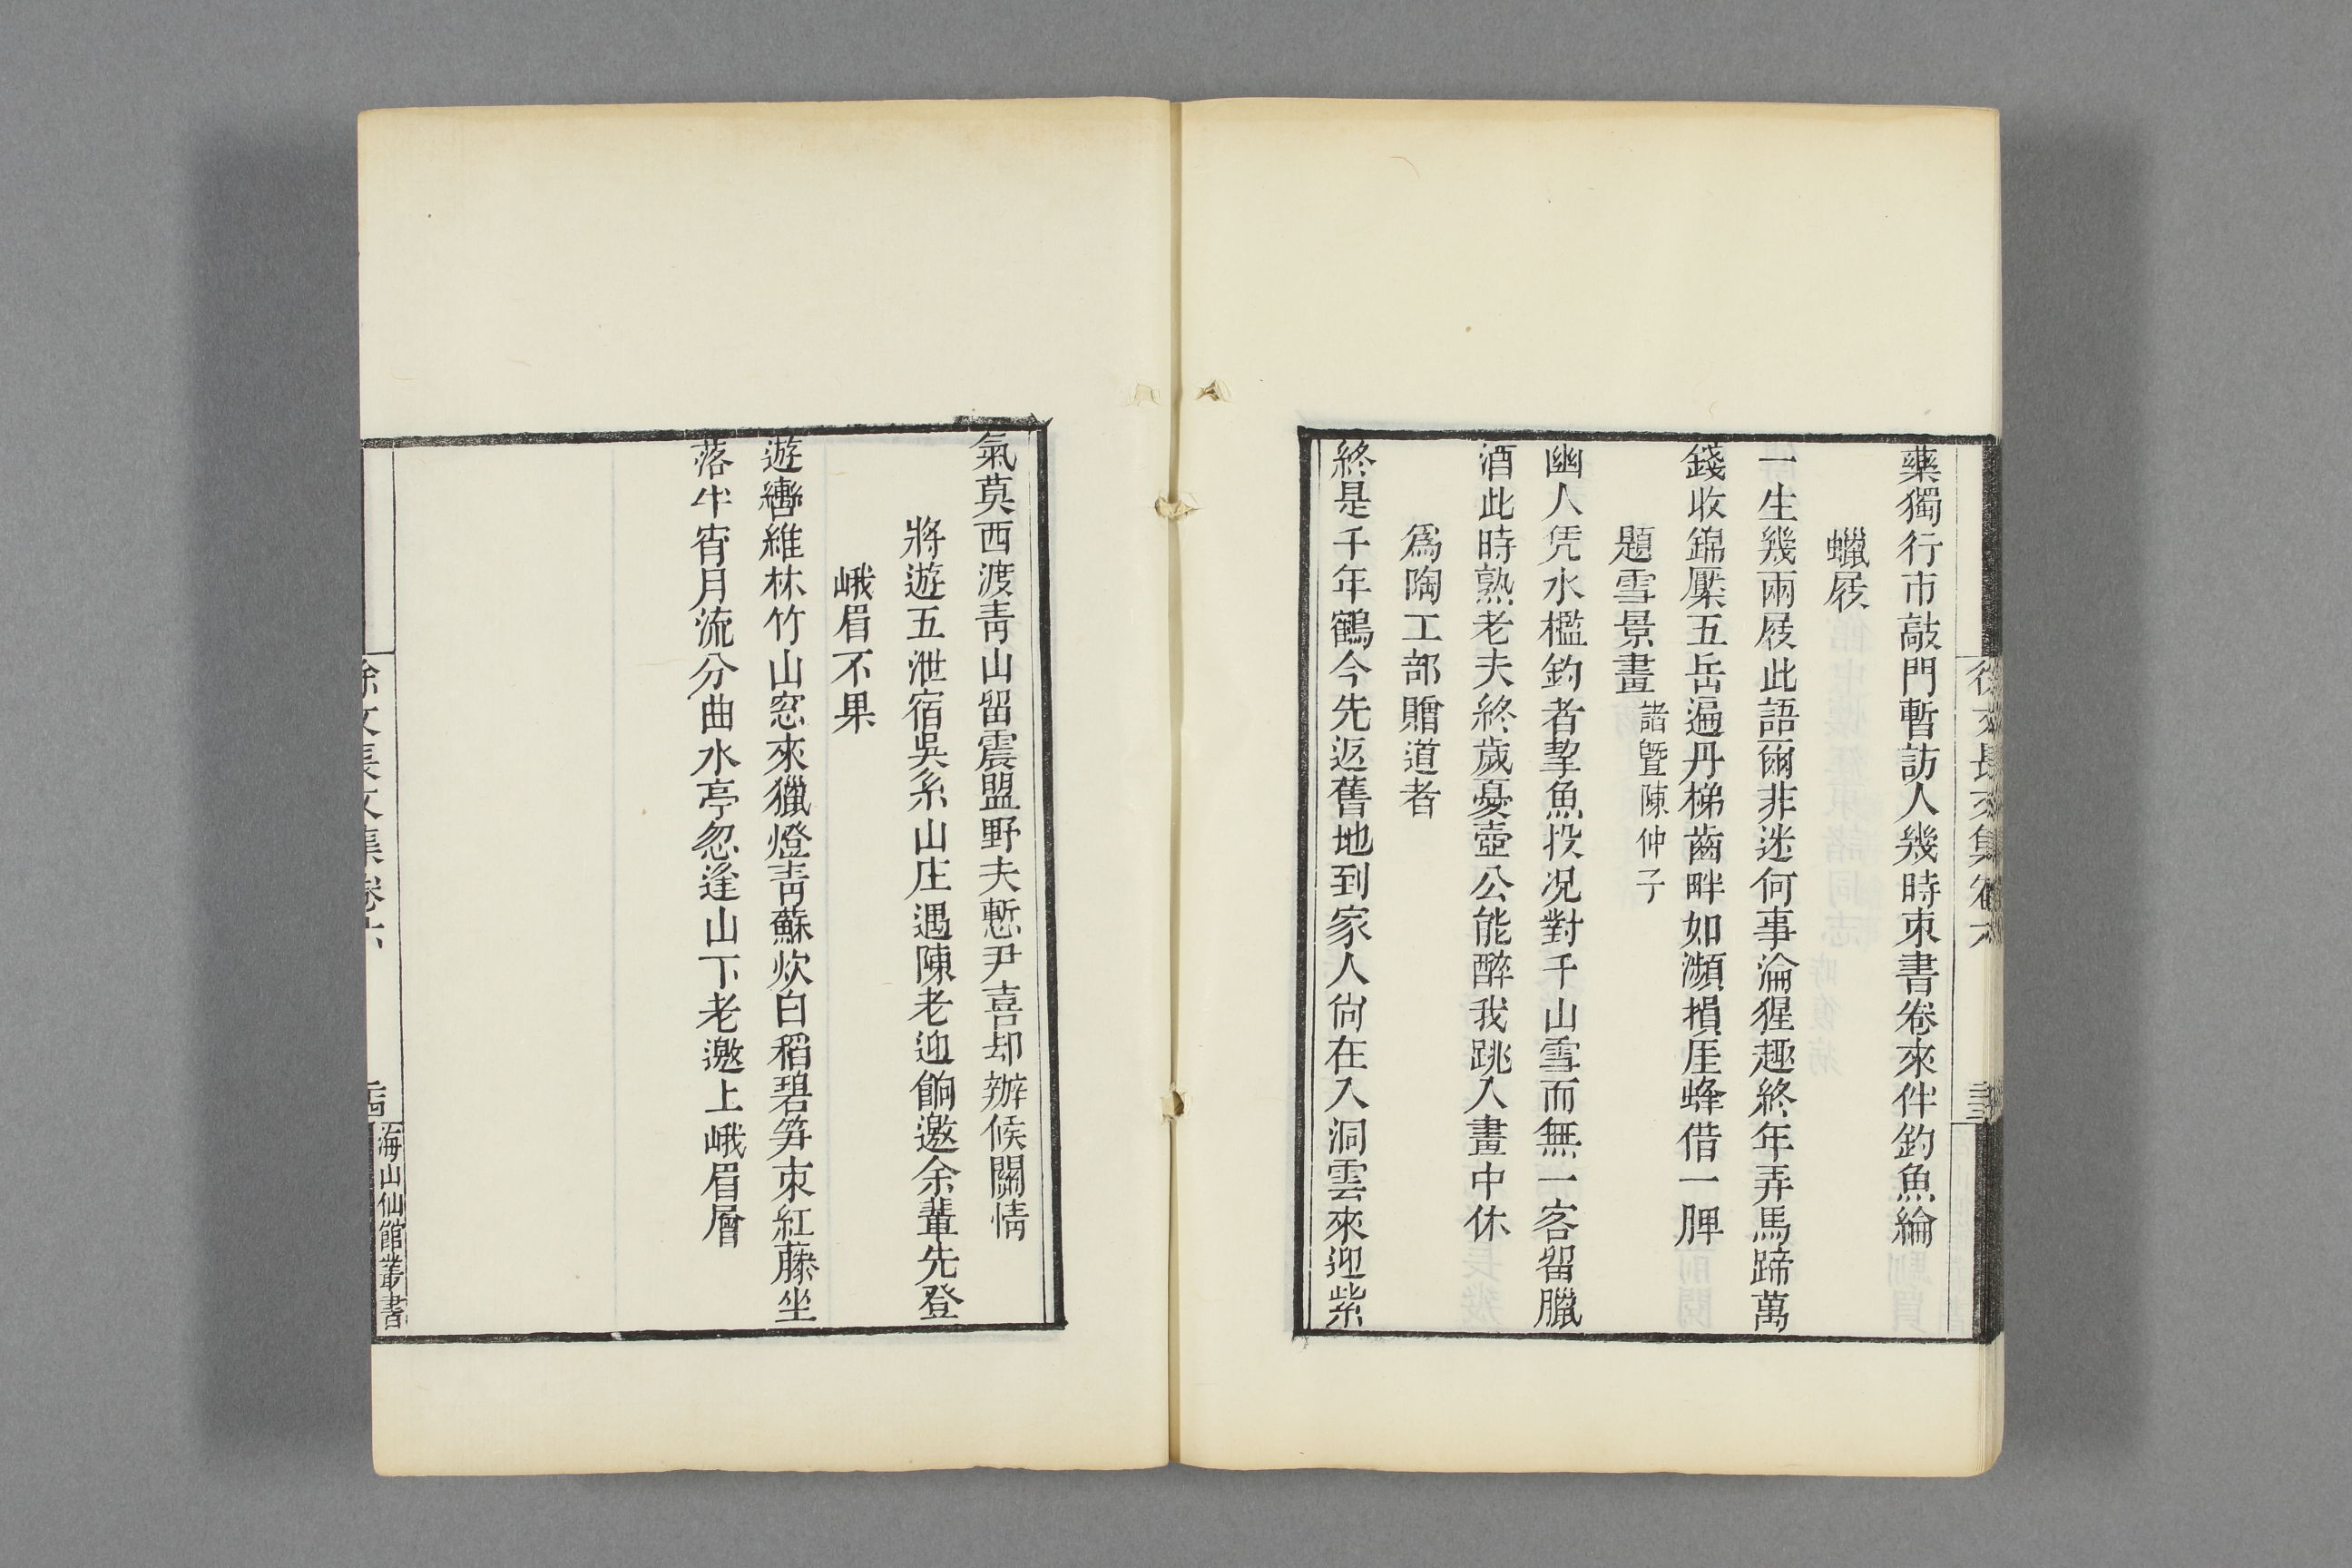 藥獨行市敲門暫訪人幾時束書卷來伴釣魚綸
蠟屐
一生幾兩屐此語爾非迷何事淪猩趣終年弄馬蹄萬
錢收錦縻五岳遍丹梯齒畔如瀕損厓蜂借一脾
題雪景畫 諸曁陳仲子
幽人凭水檻釣者挈魚投况對千山雪而無一客留臘
酒此時熟老夫終歲憂壺公能醉我跳入畫中休
爲陶工部贈道者
終是千年鶴今先返舊地到家人尙在入洞雲來迎紫
徐文長文集卷六
氣莫西渡靑山留震盟野夫慙尹喜却辦候關情
將遊五泄宿吳系山庄遇陳老迎餉邀余輩先登
峨眉不果
遊轡維林竹山窓來獵燈靑蘇炊白稻碧笋束紅藤坐
落牛宵月流分曲水亭忽逢山下老邀上峨眉層
徐文長文集卷六
海山仙館叢書